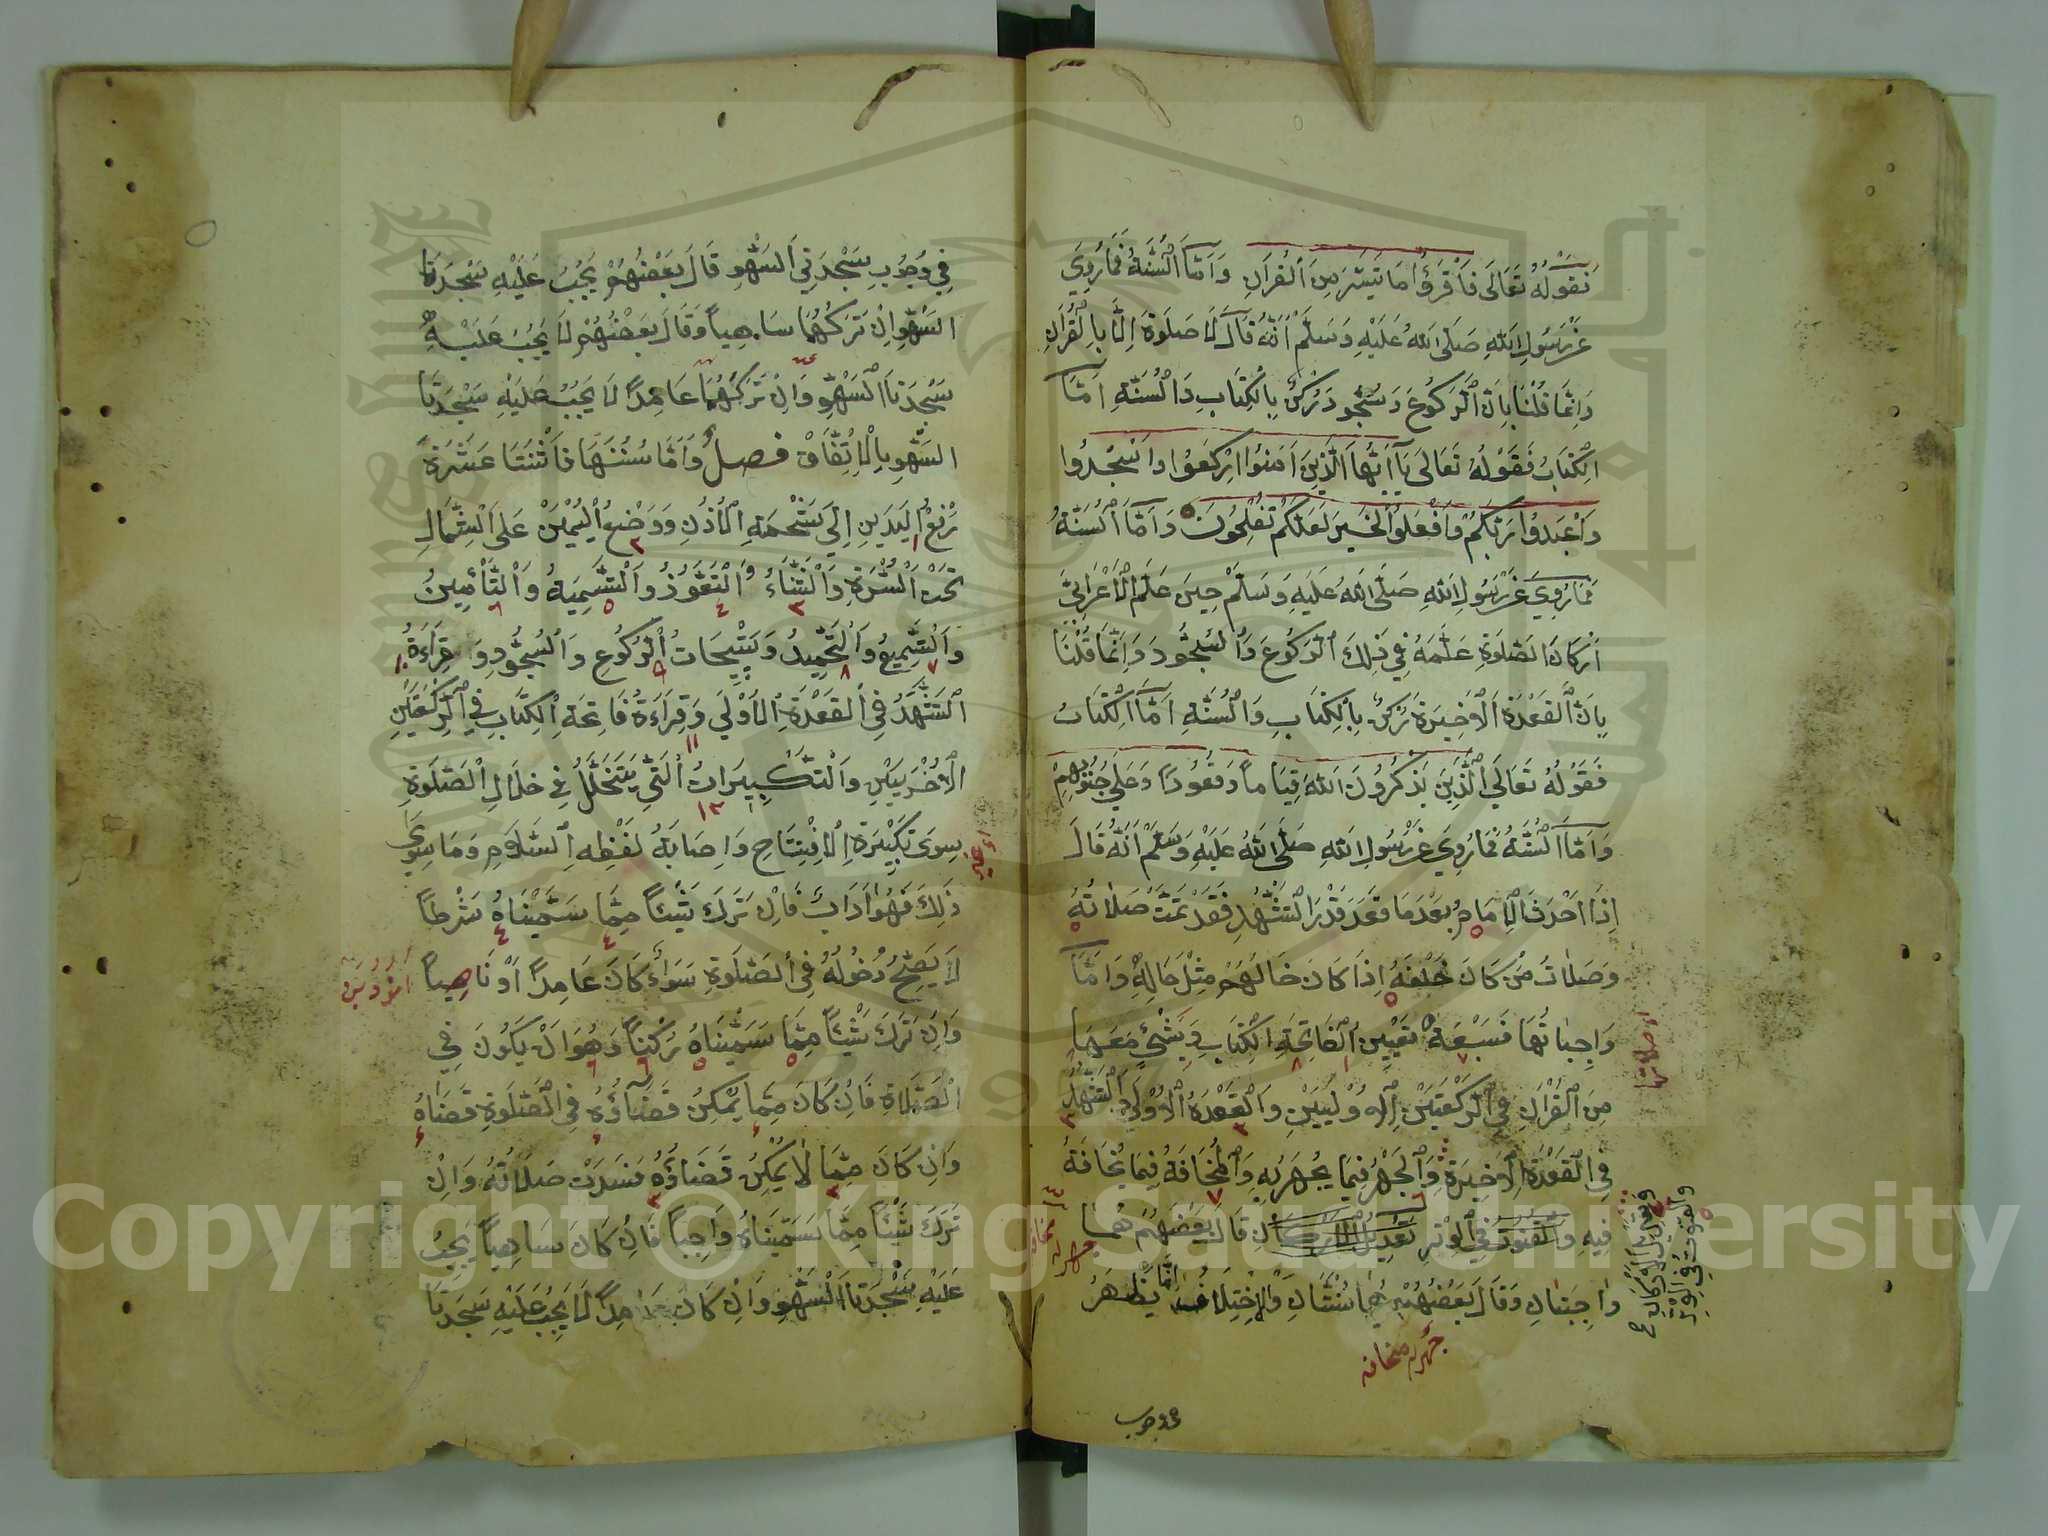 فَقَوْلُهُ تَعَالَى فَاقْرَؤُا مَا تَيَسَّرَ مِنَ الْقُرْاٰنِ وَاَمَّا السُّنَّةُ فَمَا رُوِيَ
عَنْ رَسُولِ اللّٰهِ صَلَّى اللّٰهُ عَلَيْهِ وَسَلَّمَ اَنَّهُ قَالَ لَا صَلٰوةَ اِلَّا بِالْقُرْاٰنِ
وَاِنَّمَا قُلْنَا بِاَنَّ الرُّكُوعَ وَسُجُودَ رُكْنٌ بِالْكِتَابِ وَالسُّنَّةِ اَمَّا
الْكِتَابُ فَقَوْلُهُ تَعَالَى يَآ اَيُّهَا الَّذِينَ اٰمَنُوا ارْكَعُوا وَاسْجُدُوا
وَاعْبُدُوا رَبَّكُمْ وَافْعَلُوا الْخَيْرَ لَعَلَّكُمْ تُفْلِحُونَ وَاَمَّا السُّنَّةُ
فَمَا رُوِيَ عَنْ رَسُولِ اللّٰهِ صَلَّى اللّٰهُ عَلَيْهِ وَسَلَّمَ حِينَ عَلَّمَ الْاَعْرَابِيَّ
اَرْكَانَ الصَّلٰوةِ عَلَّمَهُ فِي ذٰلِكَ الرُّكُوعَ وَالسُّجُودَ وَاِنَّمَا قُلْنَا
بِاَنَّ الْقَعْدَةَ الْاَخِيرَةَ رُكْنٌ بِالْكِتَابِ وَالسُّنَّةِ اَمَّا الْكِتَابُ
فَقَوْلُهُ تَعَالَى الَّذِينَ يَذْكُرُونَ اللّٰهَ قِيَامًا وَقُعُودًا وَعَلَى جُنُوبِهِمْ
وَاَمَّا السُّنَّةُ فَمَا رُوِيَ عَنْ رَسُولِ اللّٰهِ صَلَّى اللّٰهُ عَلَيْهِ وَسَلَّمَ اَنَّهُ قَالَ
اِذَا اَحْدَثَ الْاِمَامُ بَعْدَمَا قَعَدَ قَدْرَ التَّشَهُّدِ فَقَدْ تَمَّتْ صَلَاتُهُ
وَصَلَاتُ مَنْ كَانَ خَلْفَهُ اِذَا كَانَ حَالُهُمْ مِثْلَ حَالِهِ وَاَمَّا
وَاجِبَاتُهَا فَسَبْعَةٌ تَعْيِينُ الْفَاتِحَةِ الْكِتَابِ وَشَيْءٍ مَعَهَا
مِنَ الْقُرْاٰنِ فِي الرَّكْعَتَيْنِ الْاُولَيَيْنِ وَالْقَعْدَةُ الْاُولَى وَالتَّشَهُّدُ
فِي الْقَعْدَةِ الْاَخِيرَةِ وَالْجَهْرُ فِيمَا يُجْهَرُ بِهِ وَالْمُخَافَتَةُ فِيمَا يُخَافَتُ
فِيهِ وَالْقُنُوتُ فِي الْوِتْرِ تَعْدِيلُ الْاَرْكَانِ قَالَ بَعْضُهُمْ هُمَا
وَاجِبَتَانِ وَقَالَ بَعْضُهُمْ هُمَا سُنَّتَانِ وَالْاِخْتِلَافُ اِنَّمَا يَظْهَرُ
وَتَعْدِيلُ الْاَرْكَانِ
وَالْقُنُوتُ فِي الْوِتْرِ
فى وجوب
فِي وُجُوبِ سَجْدَتَيِ السَّهْوِ قَالَ بَعْضُهُمْ يَجِبُ عَلَيْهِ سَجْدَتَا
السَّهْوِ اِنْ تَرَكَهُمَا سَاهِيًا وَقَالَ بَعْضُهُمْ لَا يَجِبُ عَلَيْهِ
سَجْدَتَا السَّهْوِ وَاِنْ تَرَكَهُمَا عَامِدًا لَا يَجِبُ عَلَيْهِ سَجْدَتَا
السَّهْوِ بِالْاِتِّفَاقِ فصل وَاَمَّا سُنَنُهَا فَاثْنَتَا عَشَرَةَ
رَفْعُ الْيَدَيْنِ اِلَى شَحْمَةِ الْاُذُنِ وَوَضْعُ الْيَمِينِ عَلَى الشِّمَالِ
تَحْتَ السُّرَّةِ وَالثَّنَاءُ وَالتَّعَوُّذُ وَالتَّسْمِيَةُ وَالتَّأْمِينُ
وَالتَّسْمِيعُ وَالتَّحْمِيدُ وَتَسْبِيحَاتُ الرُّكُوعِ وَالسُّجُودِ وَقِرَاءَةُ
التَّشَهُّدُ فِي الْقَعْدَةِ الْاُولَى وَقِرَاءَةُ فَاتِحَةِ الْكِتَابِ فِي الرَّكْعَتَيْنِ
الْاُخْرَيَيْنِ وَالتَّكْبِيرَاتُ الَّتِي يَتَخَلَّلُ فِي خِلَالِ الصَّلٰوةِ
سِوَى تَكْبِيرَةِ الْاِفْتِتَاحِ وَاِصَابَةُ لَفْظِهِ السَّلَامِ وَمَا سِوَى
ذٰلِكَ فَهُوَ اٰدَابٌ فَاِنْ تَرَكَ شَيْئًا مِمَّا سَمَّيْنَاهُ شَرْطًا
لَا يَصِحُّ دُخُولُهُ فِي الصَّلٰوةِ سَوَاءٌ كَانَ عَامِدًا اَوْ نَاهِيًا
وَاِنْ تَرَكَ شَيْئًا مِمَّا سَمَّيْنَاهُ رُكْنًا وَهُوَ اَنْ يَكُونَ فِي
الصَّلَاةِ فَاِنْ كَانَ مِمَّا يُمْكِنُ قَضَاؤُهُ فِي الصَّلٰوةِ قَضَاهُ
وَاِنْ كَانَ مِمَّا لَا يُمْكِنُ قَضَاؤُهُ فَسَدَتْ صَلَاتُهُ وَاِنْ
تَرَكَ شَيْئًا مِمَّا سَمَّيْنَاهُ وَاجِبًا فَاِنْ كَانَ سَاهِيًا يَجِبُ
عَلَيْهِ سَجْدَتَا السَّهْوِ وَاِنْ كَانَ عَامِدًا لَا يَجِبُ عَلَيْهِ سَجَدَتَا
Copyright © King Saud University